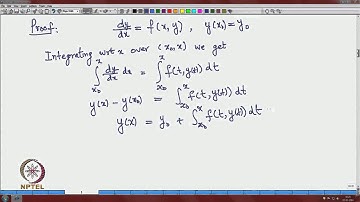 Proof: dy/dx = f(x, y), y(x₀) = y₀
Integrating wrt x over (x₀, x) we get
∫_{x₀}^{x} dy/dx dx = ∫_{x₀}^{x} f(t, y(t)) dt
y(x) - y(x₀) = ∫_{x₀}^{x} f(t, y(t)) dt
y(x) = y₀ + ∫_{x₀}^{x} f(t, y(t)) dt
NPTEL